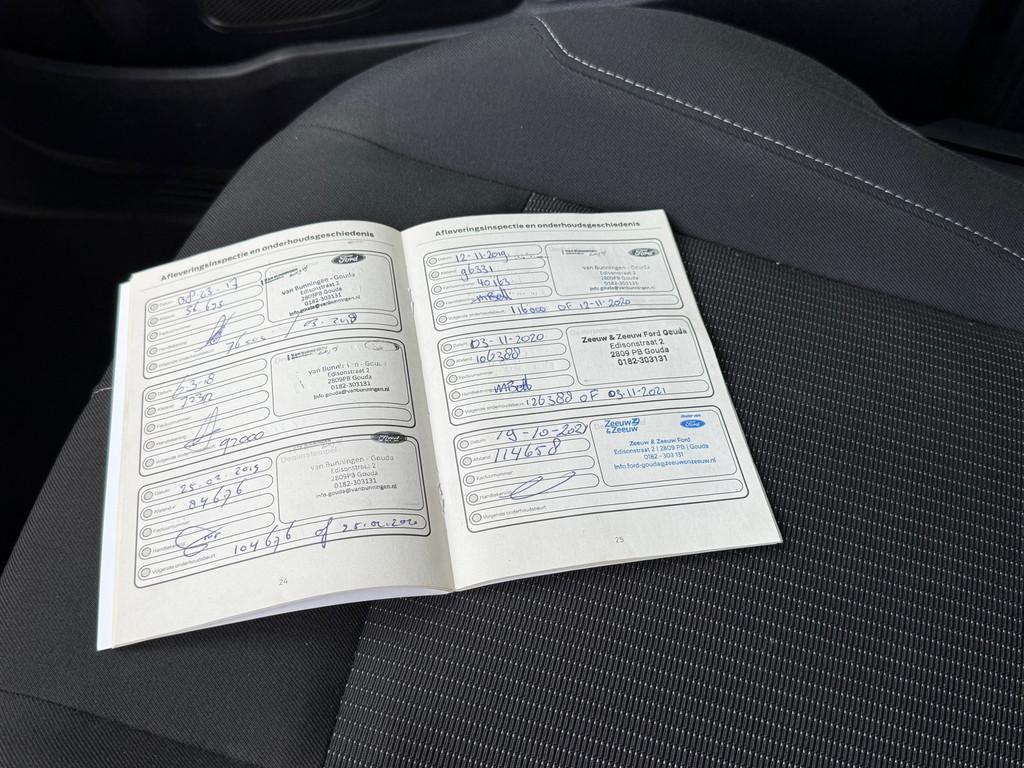 Afleveringsinspectie en onderhoudsgeschiedenis
Datum: 08-03-17
Afstand:
Factuurnummer:
Handtekening:
Ford
van Bunningen - Gouda
Edisonstraat 2
2809PB Gouda
0182-303131
info.gouda@vanbunningen.nl
Datum: 6-3-18
Afstand:
Factuurnummer:
Handtekening:
Volgende onderhoudsbeurt: 92000
Edisonstraat 2
2809PB Gouda
0182-303131
info.gouda@vanbunningen.nl
Datum: 25-02-2019
Afstand: 84676
Factuurnummer:
Handtekening:
Volgende onderhoudsbeurt: 104676 of 25-02-2020
Dealerstempel
Ford
van Bunningen - Gouda
Edisonstraat 2
2809PB Gouda
0182-303131
info.gouda@vanbunningen.nl
24
Afleveringsinspectie en onderhoudsgeschiedenis
Datum: 12-11-2019
Afstand: 96331
Factuurnummer: 40163
Handtekening:
Volgende onderhoudsbeurt: 116000 OF 12-11-2020
Ford
van Bunningen - Gouda
Edisonstraat 2
2809PB Gouda
0182-303131
info.gouda@vanbunningen.nl
Datum: 03-11-2020
Afstand: 106388
Factuurnummer:
Handtekening:
Volgende onderhoudsbeurt: 126388 OF 03-11-2021
Dealerstempel
Zeeuw & Zeeuw Ford Gouda
Edisonstraat 2
2809 PB Gouda
0182-303131
Datum: 19-10-2021
Afstand: 114658
Factuurnummer:
Handtekening:
Volgende onderhoudsbeurt:
Zeeuw
& Zeeuw
Ford
Zeeuw & Zeeuw Ford
Edisonstraat 2 | 2809 PB | Gouda
0182 - 303 131
Info.ford-gouda@zeeuwenzeeuw.nl
25